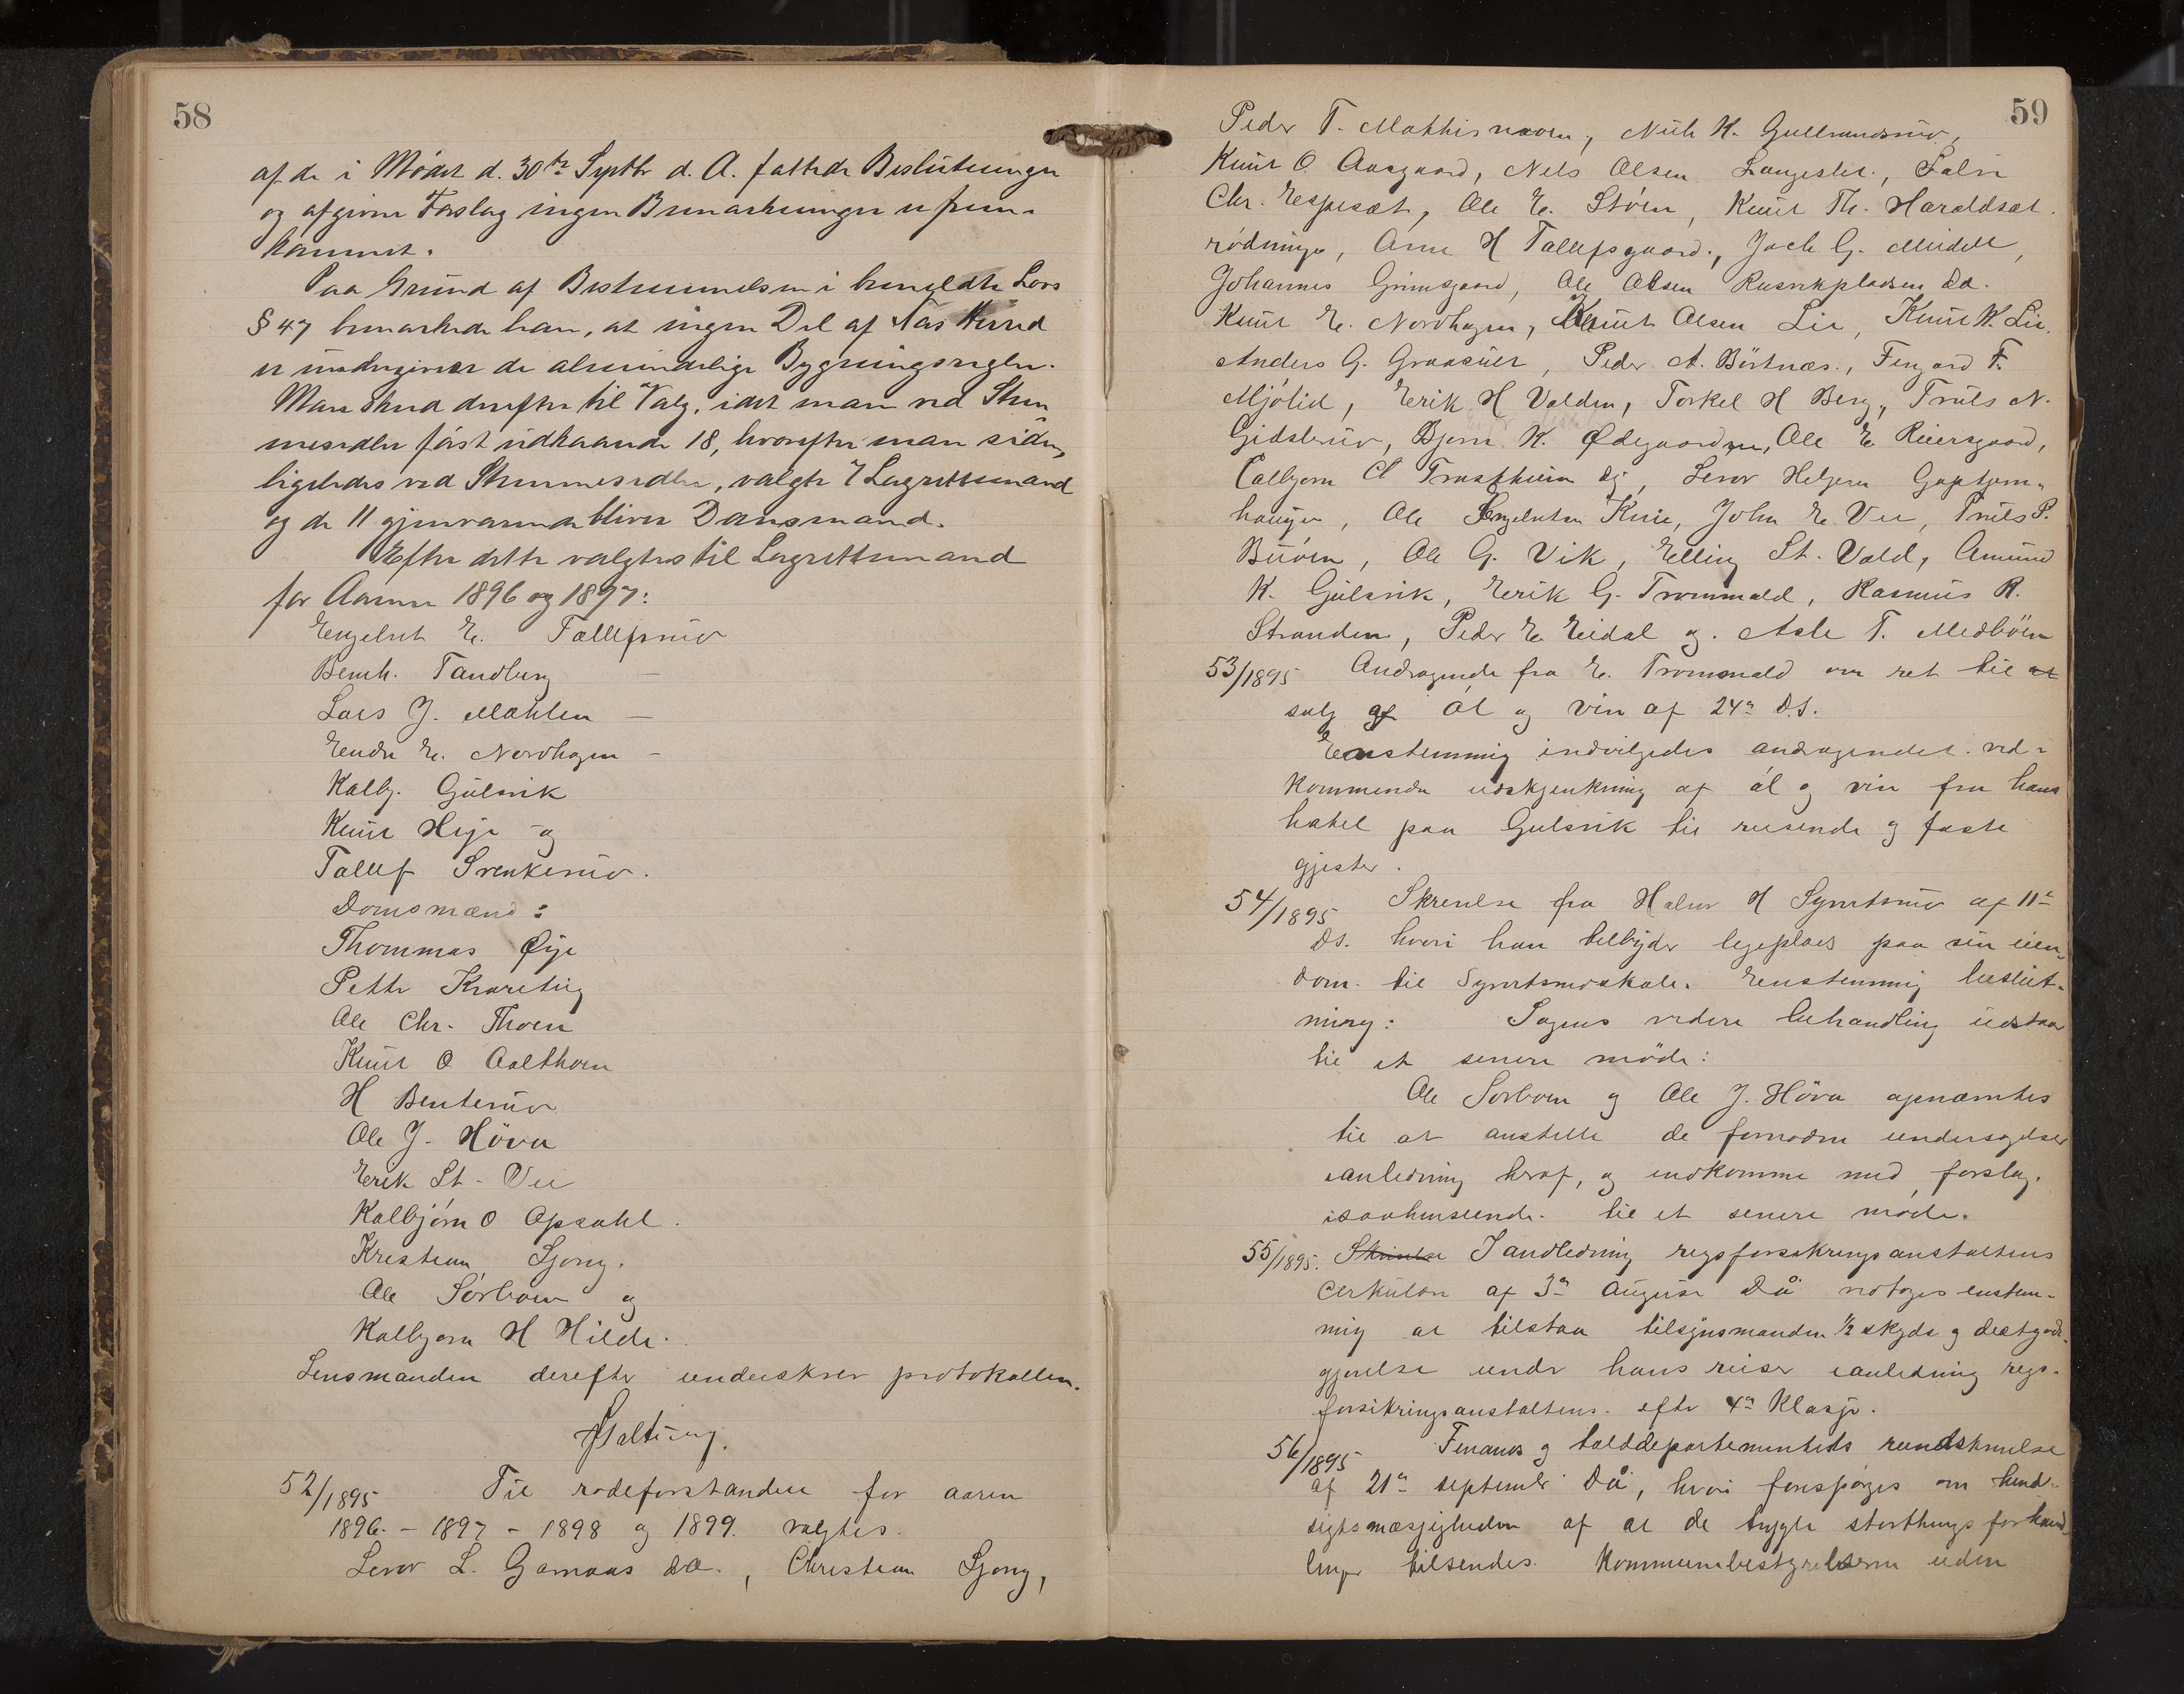 58
af de i Mødet d. 30te Septbr d. A. fattede Beslutninger
og afgivne Forslag ingen Bemærkninger er frem-
kommet.
Paa Grund af Bestemmelsen i bemeldte Lovs
§ 47 bemærkede han, at ingen Del af Næs Herred
er undergivet de almindelige Bygningsregler.
Man skred derefter til Valg, idet man ved Stem
mesedler først udkaarede 18, hvorefter man siden,
ligeledes ved Stemmesedler, valgte 7 Lagrettemænd
og de 11 gjenværende bliver Domsmænd.
Efter dette valgtes til Lagrettemænd
for Aarene 1896 og 1897:
Engebret E. Tollefsrud
Bernh. Tandberg —
Lars J. Mæhlen —
Endre E. Nordhagen -
Kolb. Gulsvik
Knut Heje og
Tollef Svenkerud.
Domsmænd:
Thommas Øye
Petter Kravetug
Ole Chr. Thoen
Knut O Aalthorn
H Benterud
Ole J. Höva
Erik St. Vee
Kolbjørn O Opsahl.
Kristian Sjong.
Ole Sørbøen og
Kolbjørn H Hilde.
Lensmanden derefter underskrev protokollen.
52/1895 Til rodeforstandere for aaren
1896. - 1897 - 1898 og 1899. valgtes.
Levor L. Garnaas da., Christian Sjong,
59
Peder T. Mathisn, Nils H. Gulbrandsrud,
Knut O. Aasgaard, Nels Olsen Langeslet.,
Chr. Espeset, Ole E. Støen, Knut Th. Haraldset.
rødningen, Arne H Tollefsgaard., Jack G. Meidell,
Johannes Grimsgaard, Ole Olsen Rusvikpladsen da.
Knut E. Nordhagen, Knut Olsen Lie, Knut K. Lie.
Anders G. Graasuer, Peder A. Børtnæs., Fingard F.
Mjölid, Erik H Volden, Torkel H Berg, Truls N.
Gidslerud, Bjørn K. Ødegaarden, Ole E Reiersgaard,
Colbjørn O Trostheim, Levor Helgesen Goptjern-
haugen, Ole Engebretsen, John E. Vee, Truls P.
Buøen, Ole G. Vik, Elling St. Vold, Amund
K. Gulsvik, Erik G. Trommald, Rasmus R.
Stranden, Peder E. Eidal og. Asle T. Medböen
53/1895 Andragende fra E. Trommald om ret til at
salg af øl og vin af 24de D.S.
Eenstemmig indvilgedes andragendet. ved-
kommende udskjenkning af øl og vin fra hans
hotel paa Gulsvik til reisende og faste
gjester.
54/1895 Skrivelse fra Halvor H Synvtsrud af 11te
Ds. hvori han tilbyder legeplads paa sin eien-
dom til Synvtsrudskole. Eenstemmig beslut-
ning: Sagens videre behandling udstaar
til et senere möde:
Ole Sørbøen og Ole J. Höva opnævntes
til at anstille de fornødne undersøgelser
ianledning heraf, og indkomme med forslag.
isaahenseende. til et senere møde.
55/1895. Skrivelse I andledning rigsforsikringsanstaltens
cirkulær af 3de August Då vedtoges eenstem-
mig at tilstaa tilsynsmanden 1/2 skyds og diætgodt-
gjørelse under hans reiser ianledning rigs-
forsikringsanstaltens. efter 4de Klasse.
56/1895 Finans og tolddepartementets rundskrivelse
af 21de september Då, hvori forespørges om hen-
sigtsmæssigheden af at de trygte storthings forhand-
linger tilsendes. Kommunebestyrelserne uden